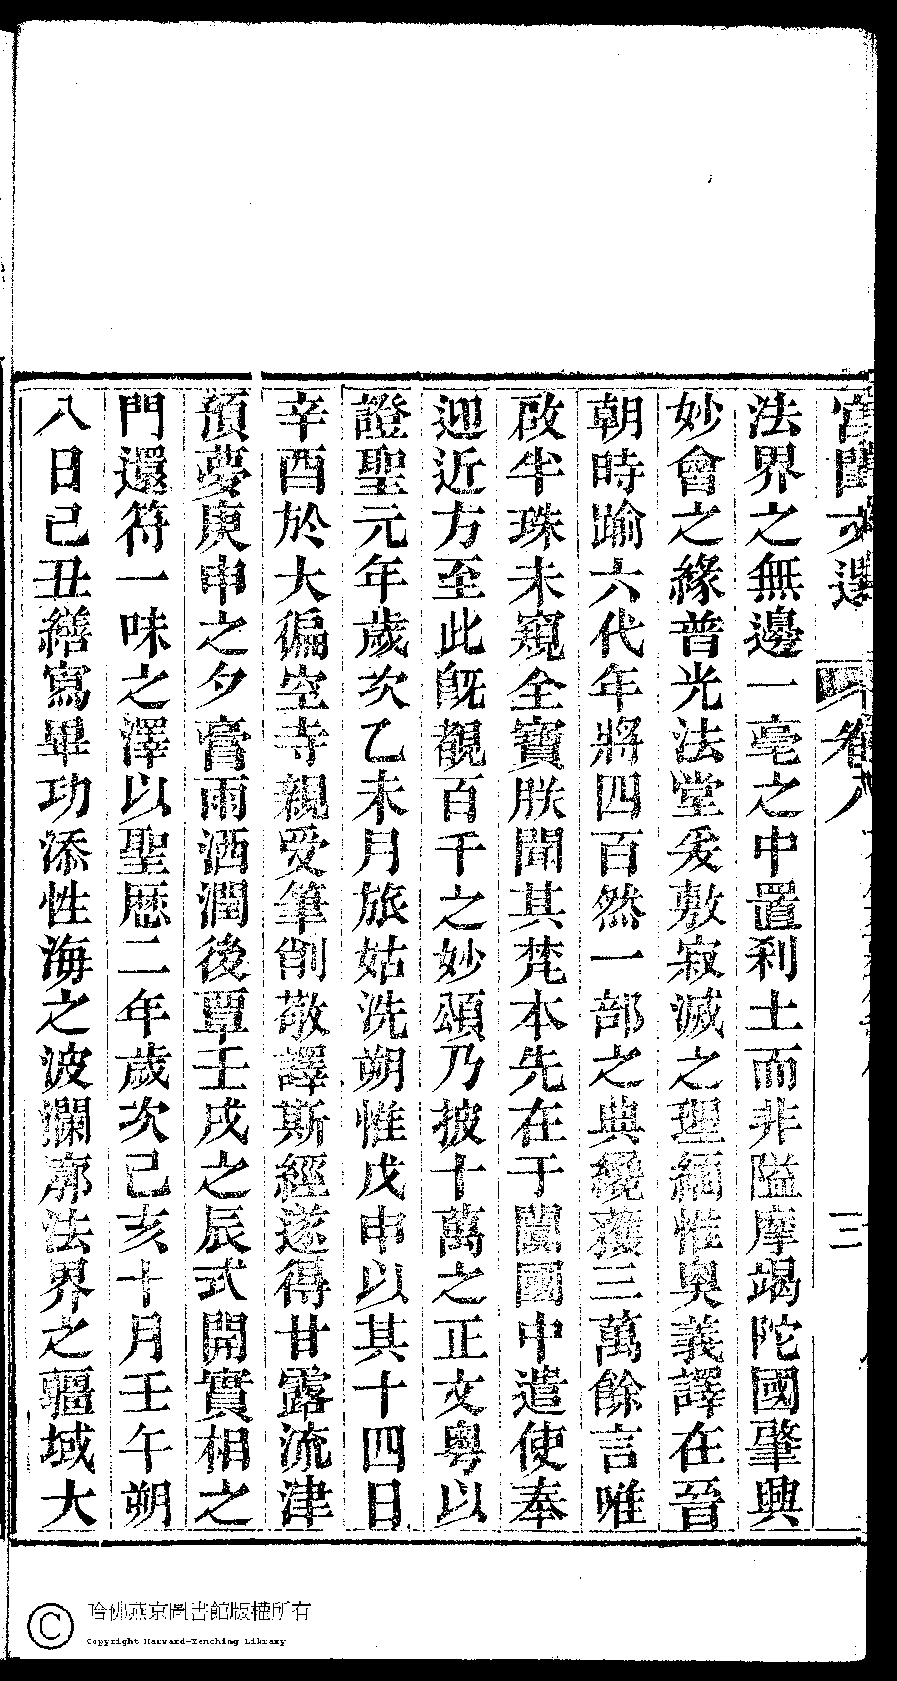 宮閨文選 卷八 三
法界之無邊一毫之中置刹土而非隘摩竭陀國肇興
妙會之緣普光法堂爰敷寂滅之理緬惟奥義譯在晉
朝時踰六代年將四百然一部之典纔獲三萬餘言唯
啟半珠未窺全寶朕聞其梵本先在于闐國中遣使奉
迎近方至此旣覩百千之妙頌乃披十萬之正文粤以
證聖元年歲次乙未月旅姑洗朔惟戊申以其十四日
辛酉於大徧空寺親受筆削敬譯斯經遂得甘露流津
預夢庚申之夕膏雨洒潤後覃壬戌之辰式開實相之
門還符一味之澤以聖厯二年歲次己亥十月壬午朔
八日己丑繕寫畢功添性海之波瀾廓法界之疆域大
哈佛燕京圖書館版權所有
Copyright Harvard-Yenching Library